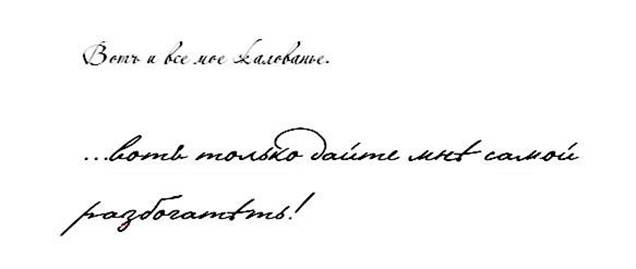 Вотъ и все мое жалованье.
...вотъ только дайте мнѣ самой
разбогатѣть!